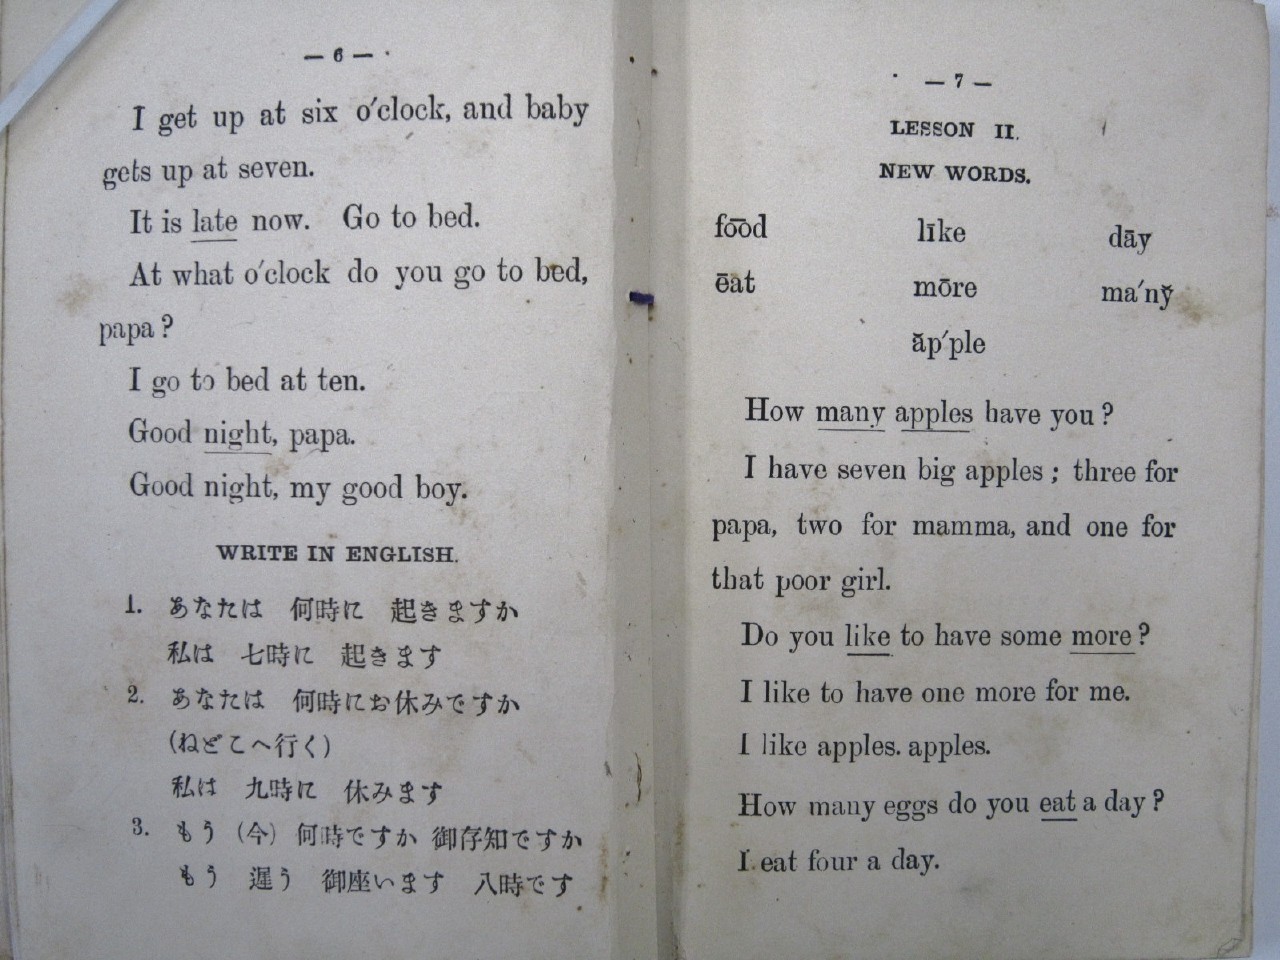 — 6 —
I get up at six o'clock, and baby
gets up at seven.
It is late now. Go to bed.
At what o'clock do you go to bed,
papa?
I go to bed at ten.
Good night, papa.
Good night, my good boy.
WRITE IN ENGLISH.
1. あなたは 何時に 起きますか
私は 七時に 起きます
2. あなたは 何時にお休みですか
(ねどこへ行く)
私は 九時に 休みます
3. もう (今) 何時ですか 御存知ですか
もう 遅う 御座います 八時です
— 7 —
LESSON II.
NEW WORDS.
fo͞od līke dāy
ēat mōre ma'ny̆
ăp'ple
How many apples have you?
I have seven big apples; three for
papa, two for mamma, and one for
that poor girl.
Do you like to have some more?
I like to have one more for me.
I like apples. apples.
How many eggs do you eat a day?
I eat four a day.